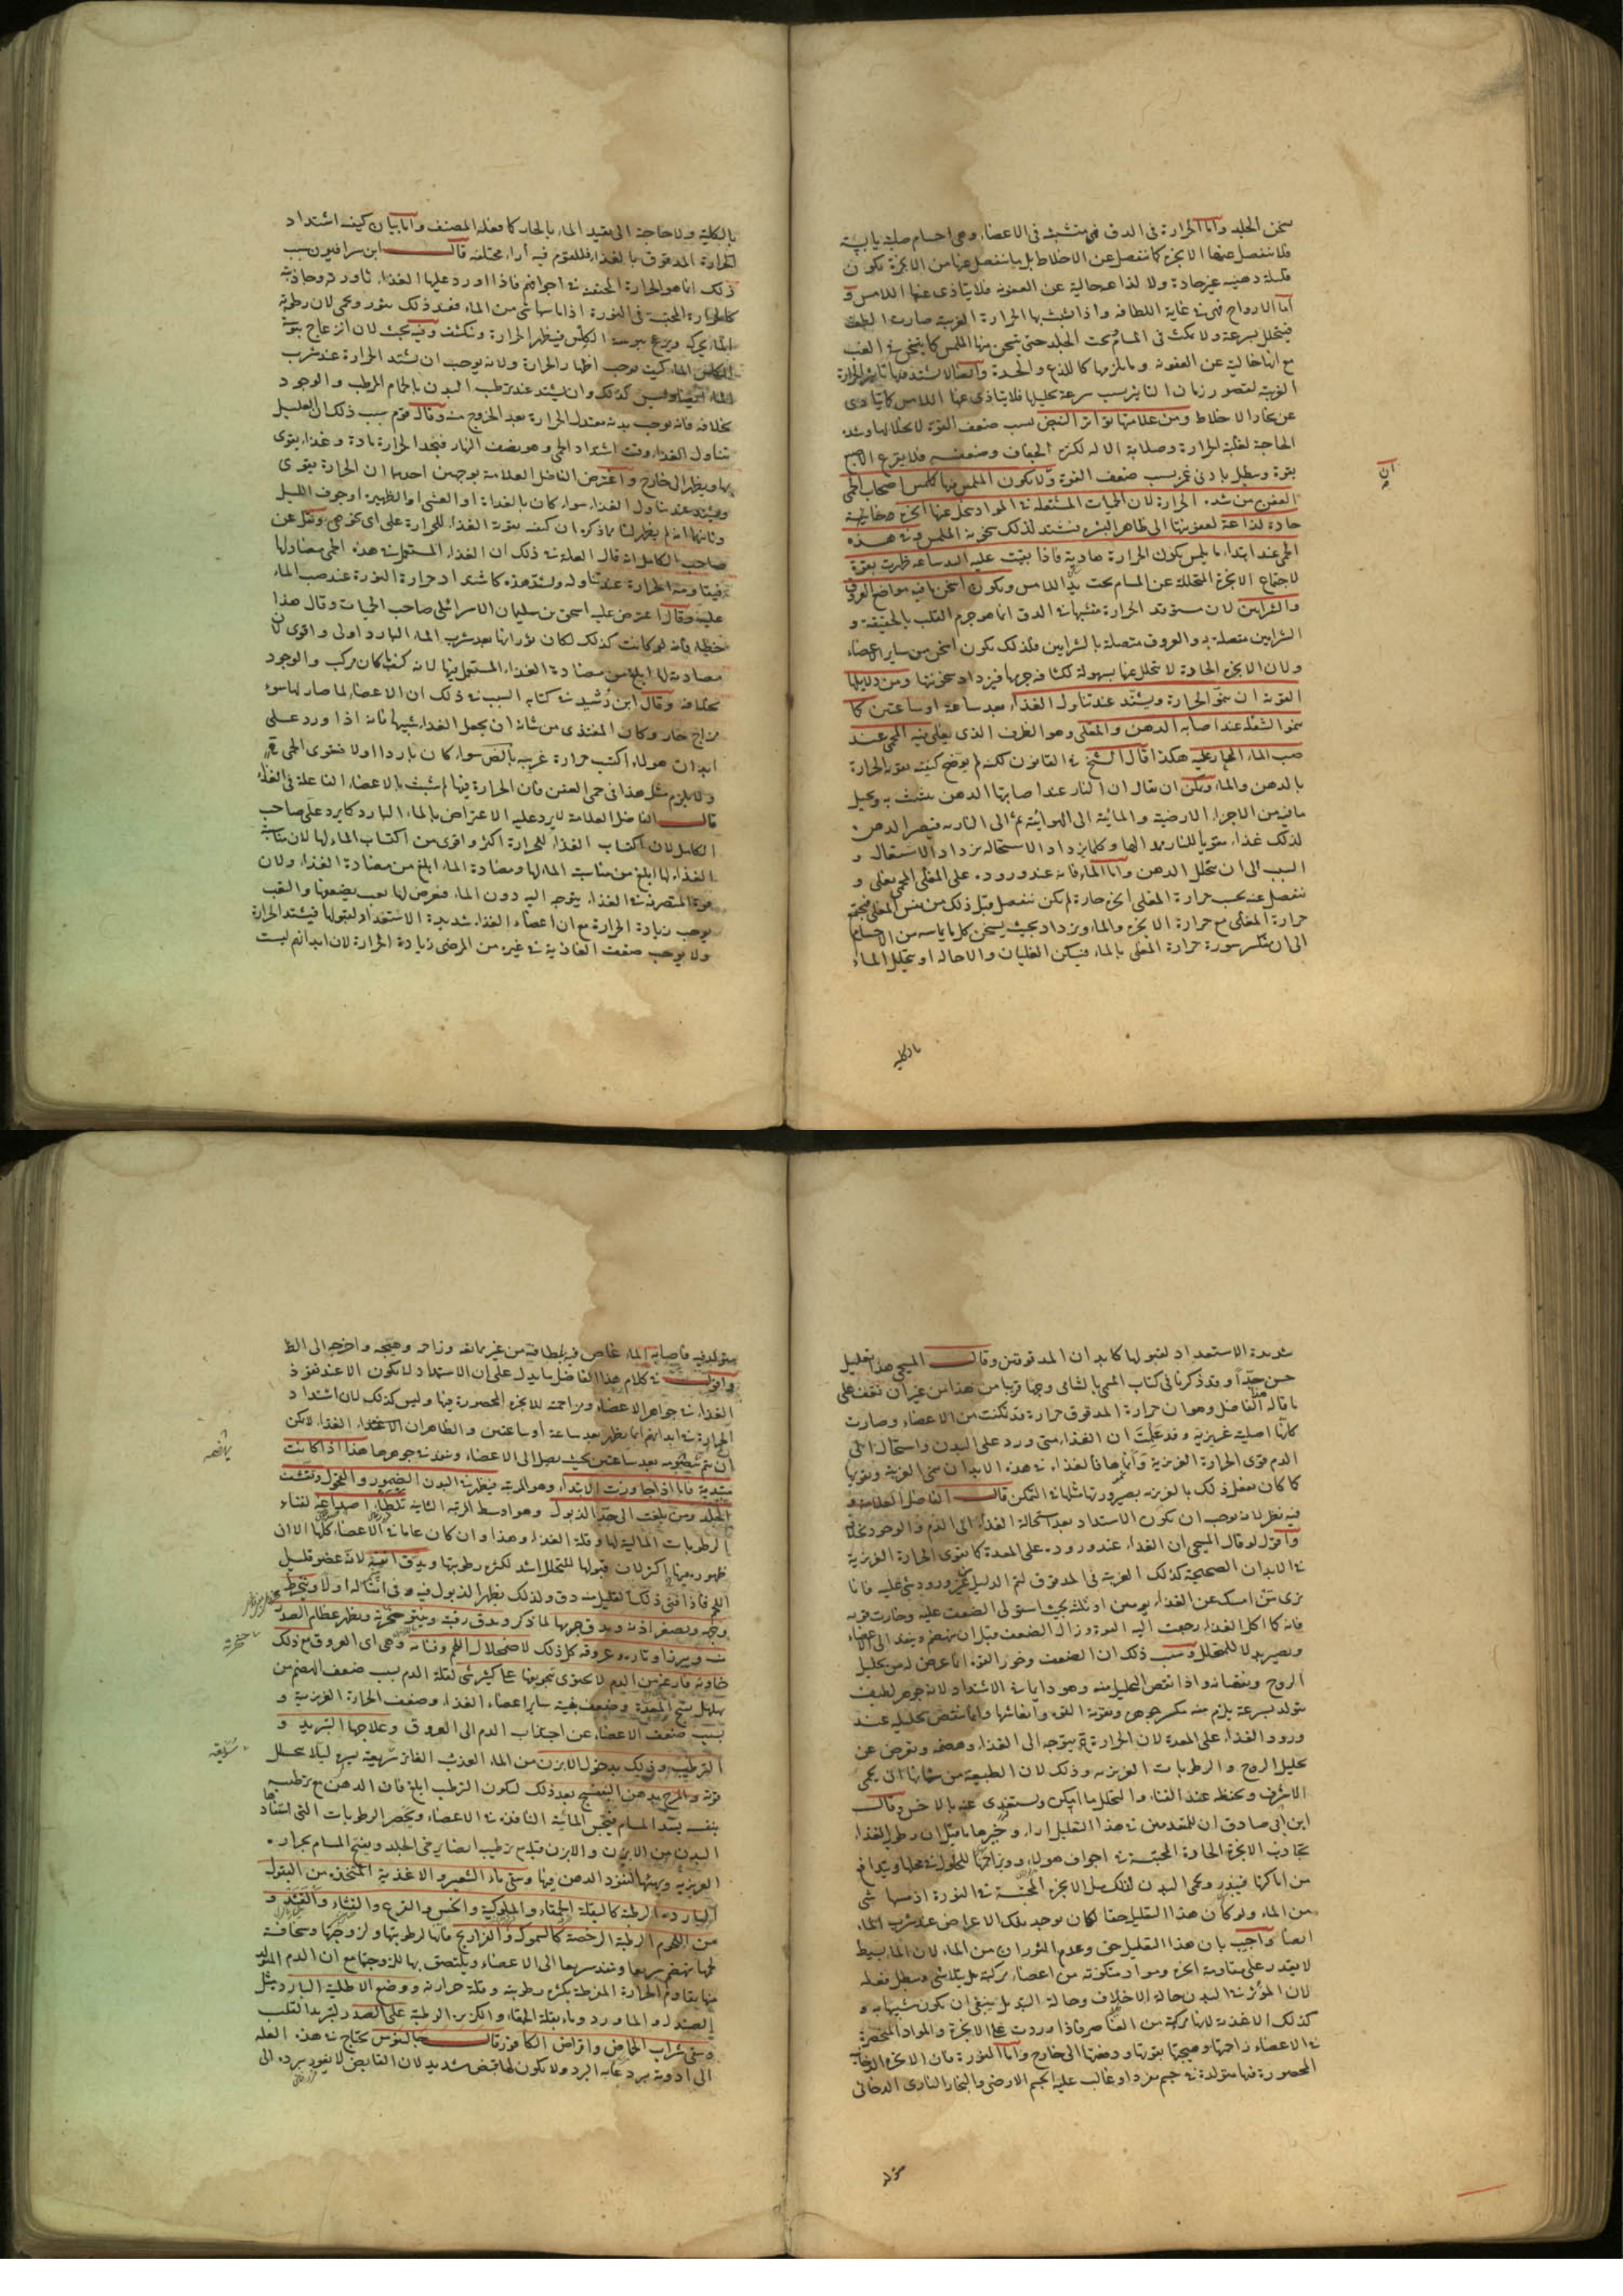 سخن الجلد واما الحرارة فى الدق فهى متشبثة فى الاعضاء وهى اجسام صلبة يابسة
فلا ينفصل عنها الابخرة كما ينفصل عن الاخلاط بل ما ينفصل عنها من الابخرة يكون
قليلة دهنية غير حادة ولا لذاعة خالية عن العفونة فلا يتاذى عنها اللامس و
اما الارواح فهى فى غاية اللطافة واذا تشبث بها الحرارة الغريبة صارت الطف
فيتحلل بسرعة ولا يمكث فى المسام تحت الجلد حتى يسخن منها الملمس كما يسخن فى الغب
مع انها خالية عن العفونة وما يلزمها كاللذع والحدة وايضا لا يشتد فيها تاثير الحرارة
الغريبة لقصور زمان التاثير بسبب سرعة تحليلها فلا يتاذى عنها اللامس كما يتاذى
عن بخار الاخلاط ومن علاماتها تواتر النبض بسبب ضعف القوة لانحلالها وشدة
الحاجة لغلبة الحرارة وصلابة الالة لكثرة الجفاف وضعفه فلا يقرع الاصبع
بقوة ويبطل بادنى غمز بسبب ضعف القوة ولا يكون الملمس فيها كملمس اصحاب الحمى
العفن من شدة الحرارة لان الحميات المشتعلة فى المواد يتحلل عنها ابخرة دخانية
حادة لذاعة لعفونتها الى ظاهر البشرة فيشتد لذلك سخونة الملمس وفى هذه
الحمى عند ابتداء ما يلمس يكون الحرارة هادية فاذا بقيت عليه اليد ساعة ظهرت بقوة
لاجتماع الابخرة المتحللة عن المسام تحت يد اللامس ويكون اسخن ما فيه مواضع العروق
والشرايين لان مستوقد الحرارة متشبثها فى الدق انما هو جرم القلب بالحقيقة و
الشرايين متصلة به والعروق متصلة بالشرايين فلذلك يكون اسخن من ساير الاعضاء
ولان الابخرة الحادة لا يتحلل عنها بسهولة لكثافة جرمها فيزداد سخونتها ومن دلايلها
القوية ان ينمو الحرارة ويشتد عند تناول الغذاء بعد ساعة او ساعتين كما
ينمو الشعلة عند اصابة الدهن والمقلى وهو الظرف الذى يغلى فيه المحمى عند
صب الماء الحار عليه هكذا قال الشيخ فى القانون لكنه لم يوضح كيفية تقوية الحرارة
بالدهن والماء ويمكن ان يقال ان النار عند اصابتها الدهن يتشبث به ويحيل
ما فيه من الاجزاء الارضية والمائية الى الهوائية ثم الى النارية فيصير الدهن
لذلك غذاء مقويا للنار ممدا لها وكلما يزداد الاستحالة يزداد الاشتعال و
اللهب الى ان يتحلل الدهن واما الماء فانه عند وروده على المقلى المحمى يغلى و
ينفصل عنه بحسب حرارة المقلى ابخرة حارة لم يكن ينفصل قبل ذلك من نفس المقلى فيجتمع
حرارة المقلى مع حرارة الابخرة والماء ويزداد بحيث يسخن كل ما يماسه من الاجسام
الى ان ينكسر سورة حرارة المقلى بالماء فيسكن الغليان والاحالة او يتحلل الماء
بالكلية
بالكلية ولا حاجة الى تقييد الماء بالحار كما فعله المصنف واما بيان كيفية اشتداد
الحرارة المدقوق بالغذاء فللقوم فيه آراء مختلفة قال ابن سرافيون سبب
ذلك انما هو الحرارة المحتقنة فى اجوافهم فاذا اورد عليها الغذاء ثاورته وحاذبته
كالحرارة المحتقنة فى النورة اذا ماسها شى من الماء فعند ذلك يثور ويحمى لان رطوبة
الماء يحرك ويزعج يبوسة الكلس فيظهر الحرارة وينكشف وفيه بحث لان انزعاج يبوسة
الكلس الماء كيف يوجب اظهار الحرارة ولانه يوجب ان يشتد الحرارة عند شرب
الماء ايضا وليس كذلك وان يشتد عند ترطب البدن بالحمام المرطب والوجود
بخلافه فانه يوجب بدنه معتدل الحرارة بعد الخروج منه وقال قوم سبب ذلك ان العليل
يتناول الغذاء وقت اشتداد الحمى وهو نصف النهار فيجد الحرارة مادة وغذاء يقوى
بها ويظهر الى خارج واعترض الفاضل العلامة بوجهين احدهما ان الحرارة يقوى
ويشتد عند تناول الغذاء سواء كان بالغداة او العشى او الظهيرة او جوف الليل
وثانيهما انه لم يظهر لنا مما ذكره ان كيف تقوية الغذاء للحرارة على اى نحو هى ونقل عن
صاحب الكامل انه قال العلة فى ذلك ان الغذاء المستعمل فى هذه الحمى مضاد لها
فيقاومه الحرارة عند تناوله ويشتد هذه كاشتداد حرارة النورة عند صب الماء
عليه وقال اعترض عليه اسحق بن سليمان الاسرائيلى صاحب الحميات وقال هذا
خطا فانه لو كانت كذلك لكان ثورانها بعد شرب الماء البارد اولى واقوى لان
مضادته لها ابلغ من مضادة الغذاء المستعمل فيها لانه كيف ما كان مركب والوجود
بخلافه وقال ابن رشد فى كتابه السبب فى ذلك ان الاعضاء لما صار لها سوء
مزاج حار وكان المغتذى من شانه ان يجعل الغذاء شبيها فانه اذا ورد على
ابدان هولاء اكتسب حرارة غريبة بالضرورة سواء كان باردا اولا فيقوى الحمى
ولا يلزم مثل هذا فى حمى العفن فان الحرارة فيها لم يتشبث بالاعضاء الفاعلة فى الغذاء
قال الفاضل العلامة لا يرد عليه الاعتراض بالماء البارد كما يرد على صاحب
الكامل لان اكتساب الغذاء للحرارة اكثر واقوى من اكتساب الماء لها لان مناسبة
الغذاء لها ابلغ من مناسبة الماء لها ومضادة الماء ابلغ من مضادة الغذاء ولان
القوة المتصرفة فى الغذاء يتوجه اليه دون الماء فيعرض لها تعب يضعفها والتعب
يوجب زيادة الحرارة مع ان اعضاء الغذاء شديدة الاستعداد لقبولها فيشتد الحرارة
ولا يوجب ضعف الغاذية فى غيره من المرضى زيادة الحرارة لان ابدانهم ليست
شديدة الاستعداد لقبولها كابدان المدقوقين وقال المسيحى هذا تعليل
حسن جدا وقد ذكرنا فى كتاب المسمى بالشافى وجها قريبا من هذا من غير ان نقف على
ما قاله الفاضل وهو ان حرارة المدقوق حرارة قد تمكنت من الاعضاء وصارت
كانها اصلية غريزية وقد علمت ان الغذاء متى ورد على البدن واستحال الى
الدم قوى الحرارة الغريزية وانماها فالغذاء فى هذه الابدان ينمى الغريبة ويقويها
كما كان يفعل ذلك بالغريزية بصيرورتها مثلها فى التمكن قال الفاضل العلامة و
فيه نظر لانه يوجب ان يكون الاشتداد بعد استحالة الغذاء الى الدم والوجود بخلافه
واقول لو قال المسيحى ان الغذاء عند وروده على المعدة كما يقوى الحرارة الغريزية
فى الابدان الصحيحة كذلك الغريبة فى المدقوق لتم الدليل من غير ورود شى عليه فانا
نرى من امسك عن الغذاء يومين او ثلثة بحيث استولى الضعف عليه وخارت قوته
فانه كما اكل الغذاء رجعت اليه القوة وزال الضعف قبل ان ينهضم وينفذ الى الاعضاء
ويصير بدلا للمتحلل وسبب ذلك ان الضعف وخور القوة انما عرض له من تحليل
الروح ونقصانه واذا نقص التحليل منه وهو دايما فى الاشتداد لانه جوهر لطيف
يتولد بسرعة يلزم منه تكثير جوهره وتقوية القوة وانعاشها وانما ينقص تحليله عند
ورود الغذاء على المعدة لان الحرارة يتوجه الى الغذاء وهضمه ويعرض عن
تحليل الروح والرطوبات الغريزية وذلك لان الطبيعة من شانها ان يحمى
الاشرف ويحفظه عند الفناء والتحلل ما امكن ويستفدى عنه بالاخس وقال
ابن ابى صادق ان للمتقدمين فى هذا التعليل اراء وخيرها ما قيل ان رطوبة الغذاء
يجاذب الابخرة الحادة المحتبسة فى اجواف هولاء ويزاحمها للحلول فى محلها ويدافع
من اماكنها فيثور ويحمى البدن لذلك مثل الابخرة المحتبسة فى النورة اذ مسها شى
من الماء ولو كان هذا التعليل حقا لكان يوجد تلك الاعراض عند شرب الماء
ايضا واجيب بان هذا التعليل حق وعدم الثوران من الماء لان الماء بسيط
لا يقدر على مقاومة ابخرة ومواد متكونة من اعضاء مركبة بل يتلاشى ويبطل فعله
لان المؤثر فى البدن حالة الاخلاف وحالة التبديل ينبغى ان يكون شبيها به و
كذلك الاغذية لانها مركبة من العناصر فاذا وردت على الابخرة والمواد المنحصرة
فى الاعضاء زاحمتها وهيجتها بقوتها ودفعتها الى خارج واما النورة فان الابخرة الدخانية
المحصورة فيها متولدة فى جسم مفرد او غالب عليه الجسم الارضى والبخار النارى الدخانى
متولد
متولد فيه فاصابه الماء غاص فيه بلطافة من غير مانعة وزاحمه وهيجه واخرجه الى الظاهر
واقول فى كلام هذا الفاضل ما يدل على ان الاشتداد لا يكون الا عند نفوذ
الغذاء فى جواهر الاعضاء ومزاحمته للابخرة المحصورة فيها وليس كذلك لان اشتداد
الحرارة فى ابدانهم انما يظهر بعد ساعة او ساعتين والظاهر ان الغذاء لا يمكن
ان يتم هضمه بعد ساعتين بحيث يصل الى الاعضاء وينفذ فى جوهرها هذا اذا كانت
مبتدية فاما اذا جاوزت الابتداء وهو المرتبة فيظهر فى البدن الضمور والنحول ويقشف
الجلد ومتى بلغت الى حد الذبول وهو اوسط الرتبة الثانية تلطا اصداغه لفناء
الرطوبات المالية لها وقلة الغذاء وهذا وان كان عاما فى الاعضاء كلها الا ان
ظهوره فيها اكثر لان قبولها للتحلل اشد لكثرة رطوبتها ويدق انفه لانه عضو قليل
اللحم فاذا فنى ذلك القليل منه دق ولذلك يظهر الذبول فيه وفى امثاله اولا ويتخطط
وجهه ويصغر اذنه ويدق جرمها لما ذكر ويدق رقبته وينتو حنجرته ويظهر عظام الصدر
منه ويبرز اوتاره وعروقه كل ذلك لاضمحلال اللحم وفنائه وهى اى العروق مع ذلك
خاوية فارغة من الدم لا يحتوى تجويفها على كثير شى لقلة الدم بسبب ضعف الهضم من
تهلهل نسج المعدة وضعف بقية ساير اعضاء الغذاء وضعف الحرارة الغريزية و
بسبب ضعف الاعضاء عن اجتذاب الدم الى العروق وعلاجها التبريد و
الترطيب وذلك بدخول الابزن من الماء العذب الفاتر سريعة لئلا يتحلل
قوته والمرخ بدهن البنفسج بعد ذلك ليكون الترطيب ابلغ فان الدهن مع ترطيبه
بنفسه يسد المسام فيحتبس المائية النافذة فى الاعضاء وينحصر الرطوبات التى استفاد
البدن من الابزن والابزن قبله مع ترطيبه ايضا يرخى الجلد ويفتح المسام بحرارته
الغريزية ويهيئها لنفوذ الدهن فيها وسقى ماء الشعير والاغذية المتخذة من البقول
الباردة الرطبة كالبقلة الحمقاء والملوكية والخس والقرع والقثاء والقثد و
من اللحوم الرطبة الرخصة كالسموك والفراريج فانها لرطوبتها ولزوجتها وسخافة
لحمها ينهضم سريعا وينفذ سريعا الى الاعضاء ويلتصق بها للزوجتها مع ان الدم المتولد
منها يقاوم الحرارة المفرطة بكثرة رطوبته وقلة حرارته ووضع الاطلية الباردة مثل
الصندل والماورد وماء بقلة الحمقاء والكزبرة الرطبة على الصدر لتبريد القلب
وسقى شراب الحماض واقراض الكافور قال جالينوس يحتاج فى هذه العلة
الى ادوية يبرد غاية البرد ولا يكون لها قبض شديد لان القابض لا يغور برده الى